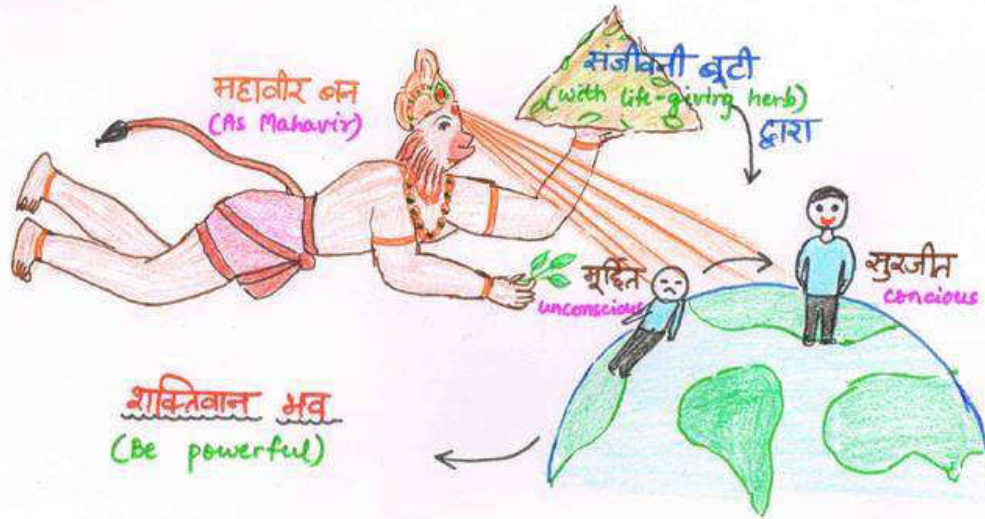 महावीर बन
(As Mahavir)
संजीवनी बूटी
(with life-giving herb)
द्वारा
मूर्छित
unconscious
सुरजीत
concious
शक्तिवान भव
(Be powerful)